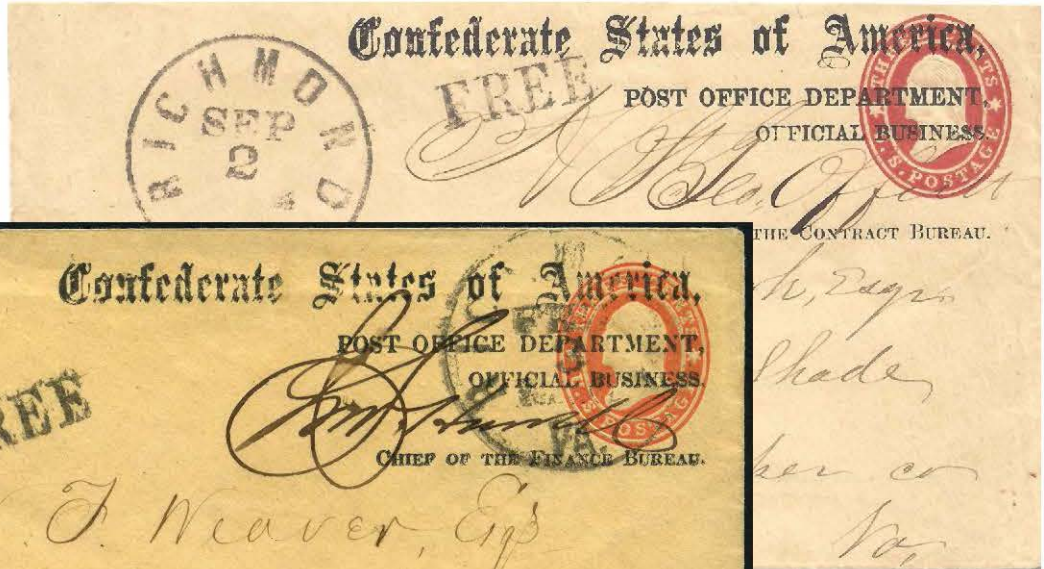 Confederate States of America,
FREE
POST OFFICE DEPARTMENT,
OFFICIAL BUSINESS.
RICHMOND
SEP
2
THREE CENTS
U.S. POSTAGE
THE CONTRACT BUREAU.
h, Esqr.
Shade
ker co
Va,
Confederate States of America,
POST OFFICE DEPARTMENT,
OFFICIAL BUSINESS.
REE
VA.
U.S. POSTAGE
CHIEF OF THE FINANCE BUREAU.
J. Weaver, Esqr